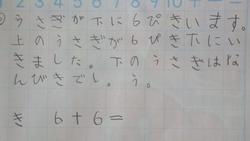 2 3 4 5 6 7 8 9 10
うさぎが下に6ぴきいます。
上のうさぎが6ぴき下にい
きました。下のうさぎはな
んびきでし。う。
き 6+6=